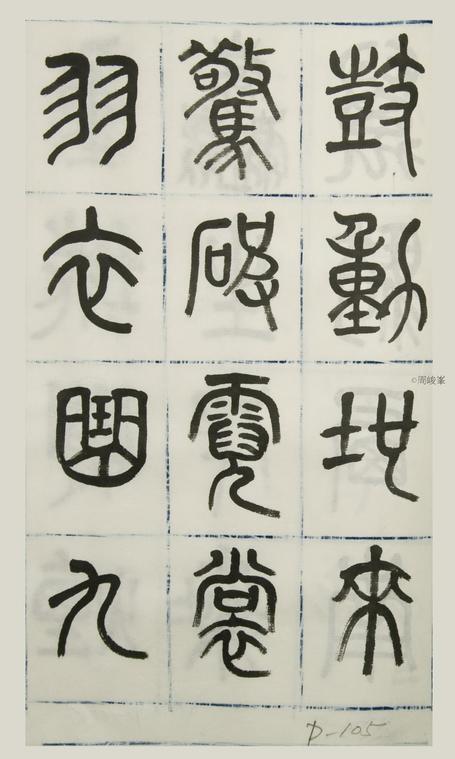 鼓動地來
驚破霓裳
羽衣曲九
©周峻峯
D-105